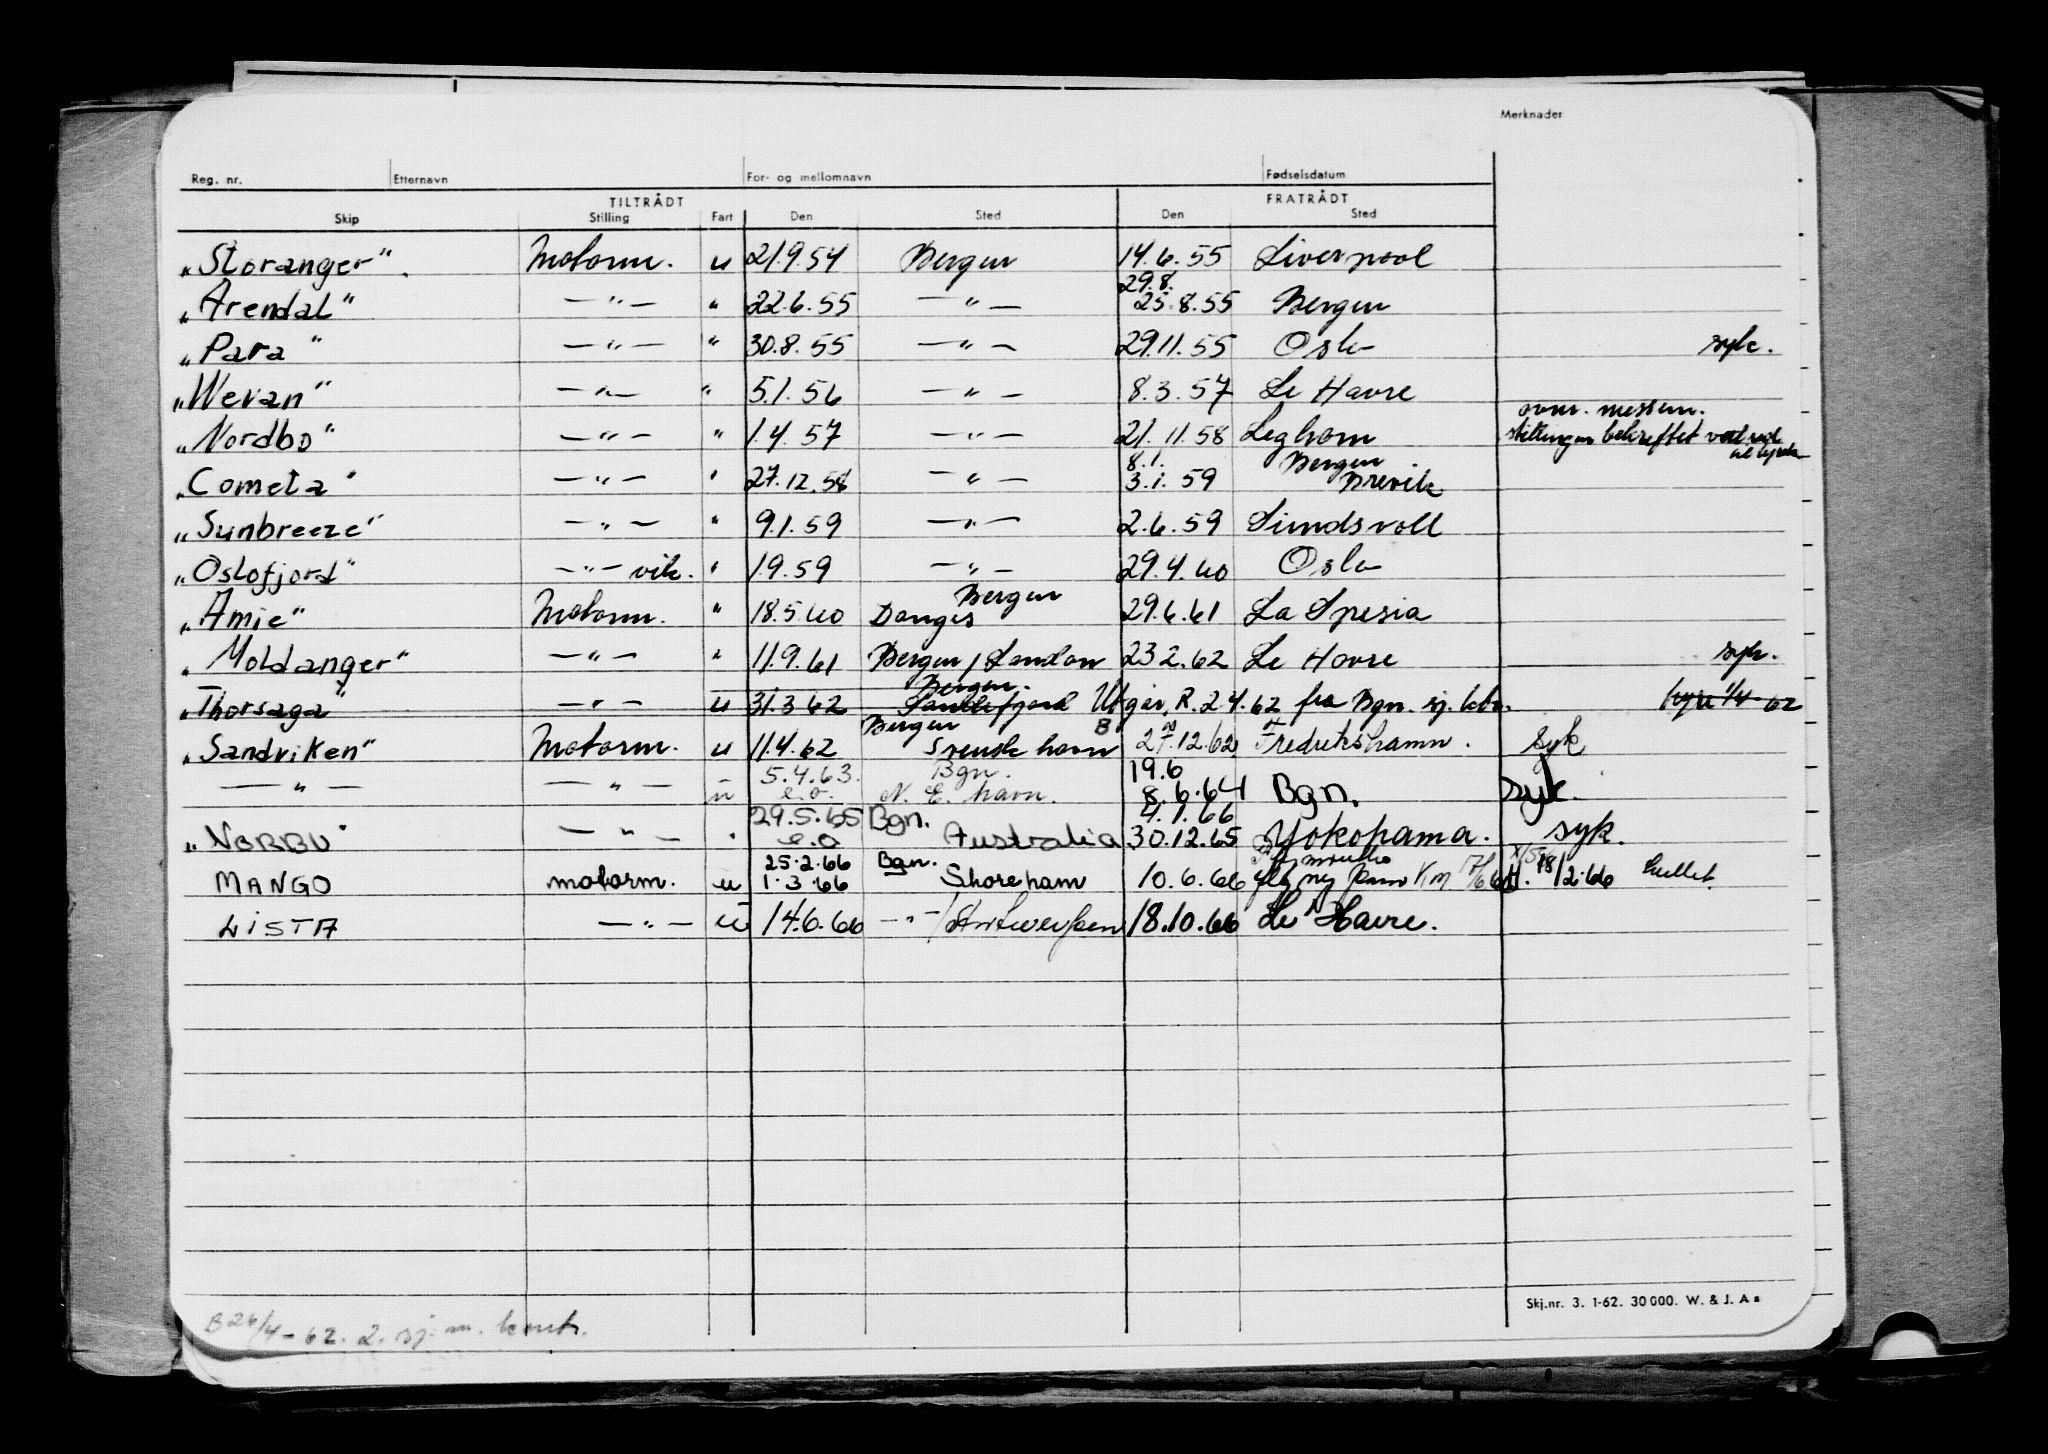 Merknader
Reg. nr. Etternavn For- og mellomnavn Fødselsdatum
TILTRÅDT FRATRÅDT
Skip Stilling Fart Den Sted Den Sted
„Storanger“. Motorm. u 21.9.54 Bergen 14.6.55 Liverpool
29.8.
„Arendal“ —"— " 22.6.55 —"— 25.8.55 Bergen
„Para“ —"— " 30.8.55 —"— 29.11.55 Oslo syk.
„Weran“ —"— " 5.1.56 —"— 8.3.57 Le Havre
ovnr. messem.
„Nordbo“ —"— " 1.4.57 —"— 21.11.58 Leghorn stillingen bekreftet ved red
8.1. Bergen
„Cometa“ —"— " 27.12.58 "— 3.1.59 Brevik
„Sunbreeze“ —"— " 9.1.59 —"— 2.6.59 Sundsvoll
„Oslofjord“ —"— vik. " 1.9.59 —"— 29.4.60 Oslo
Bergen
„Amie“ Motorm. " 18.5.60 Donges 29.6.61 La Spesia
„Moldanger“ —"— " 11.9.61 Bergen/London 23.2.62 Le Havre syk.
Bergen.
„Thorsaga“ —"— u 31.3.62 Sandefjord Utgår, R. 2.4.62 fra Bgn. sj. ktr. hyre 1/4-62
Bergen B
„Sandviken“ Motorm. u 11.4.62 Svensk havn 27.12.62 Fredrikshamn. syk
5.4.63. Bgn. 19.6
—"— —"— u e.o. N. E. havn. 8.6.64 Bgn. syk.
29.5.65 Bgn. 4.1.66
„NORBU“ —"— " e.o Australia 30.12.65 Yokohama. syk.
25.2.66 Bgn.
MANGO motorm. u 1.3.66 Shoreham 10.6.66 ny Km 17/6 18/2.66
LISTA —"— u 14.6.66 —"—/Antwerpen 18.10.66 Le Havre.
Skj.nr. 3. 1-62. 30 000. W. & J. A s
B 26/4-62. 2. sj. m. kont.